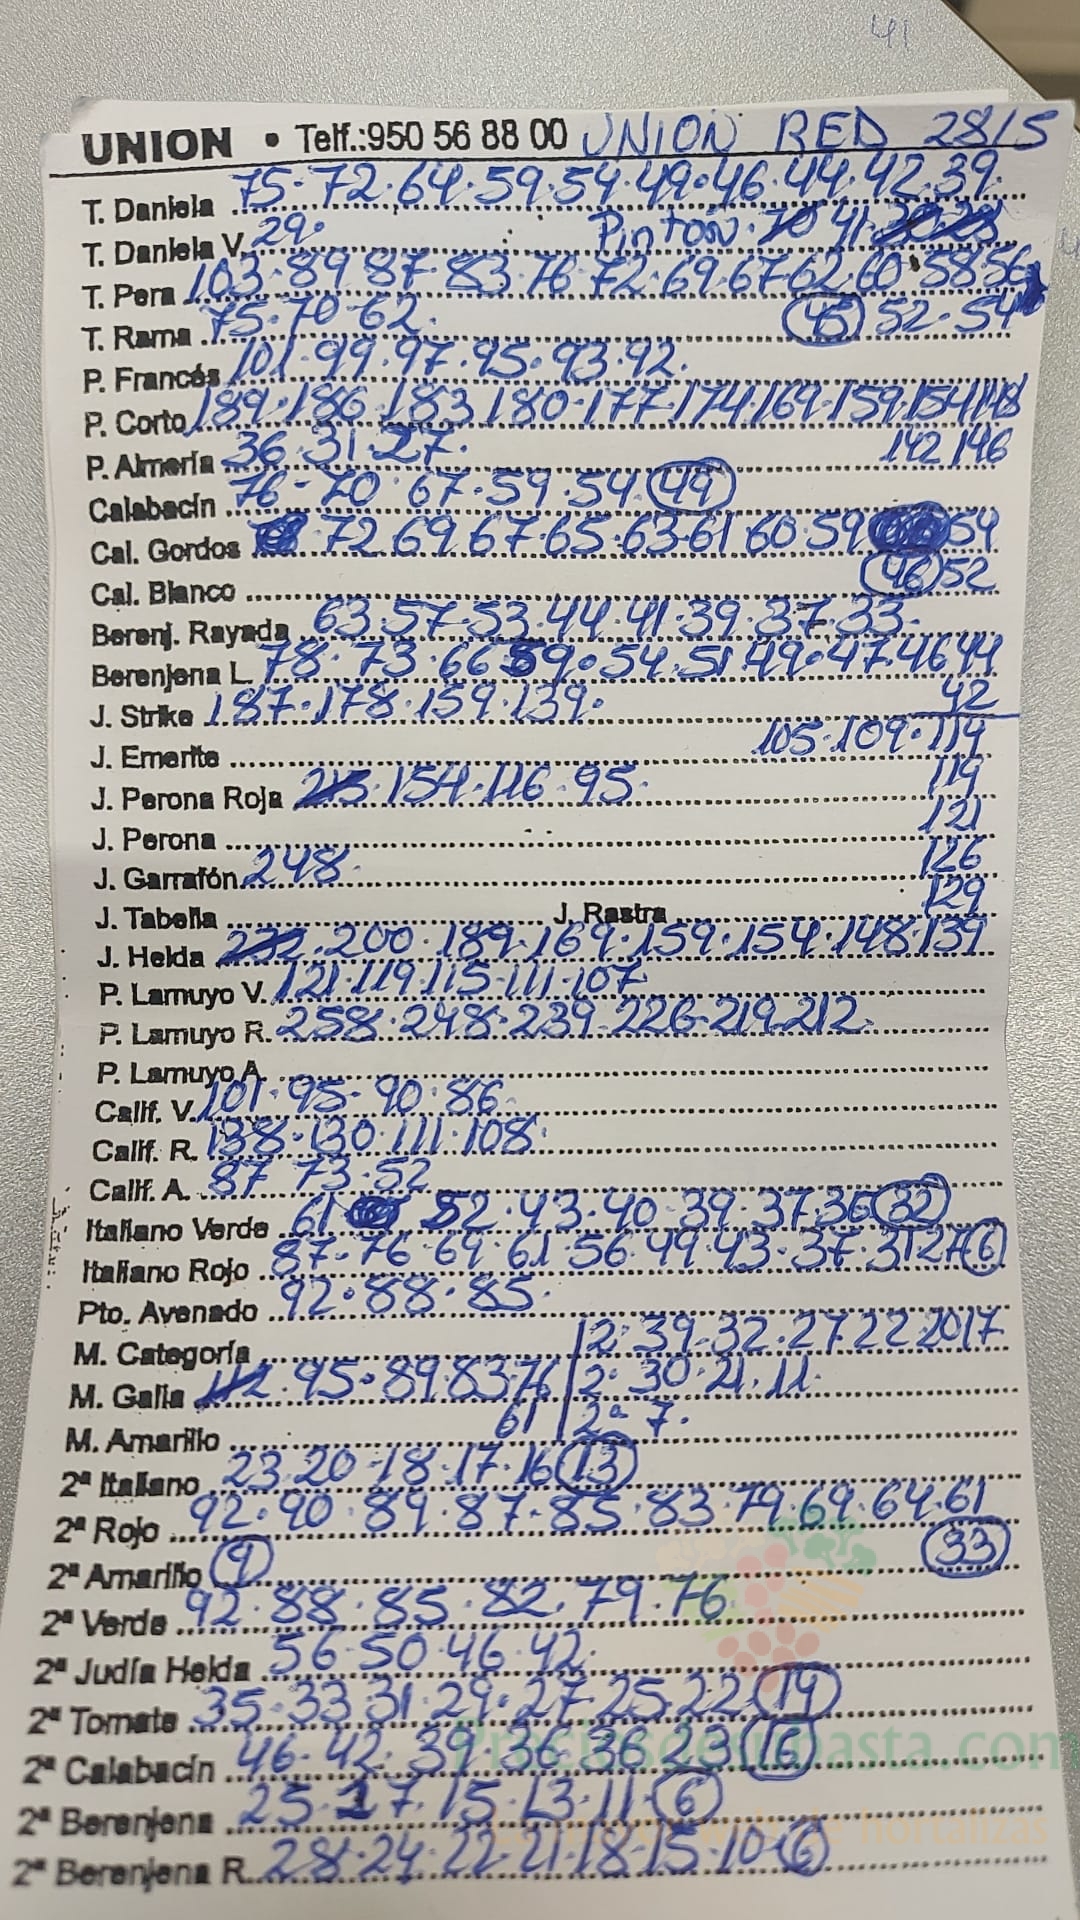 41
UNION • Telf.:950 56 88 00 UNION RED 28/5
T. Daniela 75.72.64.59.54.49.46.44.42.39.
T. Daniela V. 29. Pintón. 41
T. Pera 103.89.87.83.76.72.69.67.62.60.58.56
T. Rama 75.70.62. (45) 52.54
P. Francés 101.99.97.95.93.92.
P. Corto 189.186.183.180.177.174.169.159.154.148
P. Almería 36.31.27. 142 146
Calabacín 76-70.67.59.54.(49)
Cal. Gordos 72.69.67.65.63.61.60.59 54
Cal. Blanco (46) 52
Berenj. Rayada 63.57.53.44.41.39.37.33.
Berenjena L. 78.73.66 59.54.51.49.47.46 44
J. Strike 187.178.159.139. 42
J. Emerite 105.109.114
J. Perona Roja 154.116.95. 119
J. Perona 121
J. Garrafón 248. 126
J. Tabella J. Rastra 129
J. Helda 232.200.189.169.159.154.148.139
P. Lamuyo V. 121.119.115.111.107
P. Lamuyo R. 258.248.239.226-219.212.
P. Lamuyo A.
Calif. V. 101.95.90.86.
Calif. R. 138.130.111.108.
Calif. A. 87 73.52
Italiano Verde 61 52.43.40.39.37.36 (32)
Italiano Rojo 87.76.69.61.56.49.43.37.31.27 (6)
Pto. Avenado 92.88.85.
M. Categoría 2ª 39.32.27 22.20 17
M. Galia 95.89.83.76 2ª 30.21.11.
M. Amarillo 61 2ª 7.
2ª Italiano 23.20.18.17.16 (13)
2ª Rojo 92.90.89.87.85.83.79.69.64.61
2ª Amarillo (9) (33)
2ª Verde 92.88.85.82.79.76
2ª Judía Helda 56.50.46.42.
2ª Tomate 35.33.31.29.27.25.22 (19)
2ª Calabacín 46.42.39.36.36 23 (16)
2ª Berenjena 25.17.15.13.11.(6)
2ª Berenjena R. 28.24.22.21.18.15.10.(6)
Preciosdesubasta.com